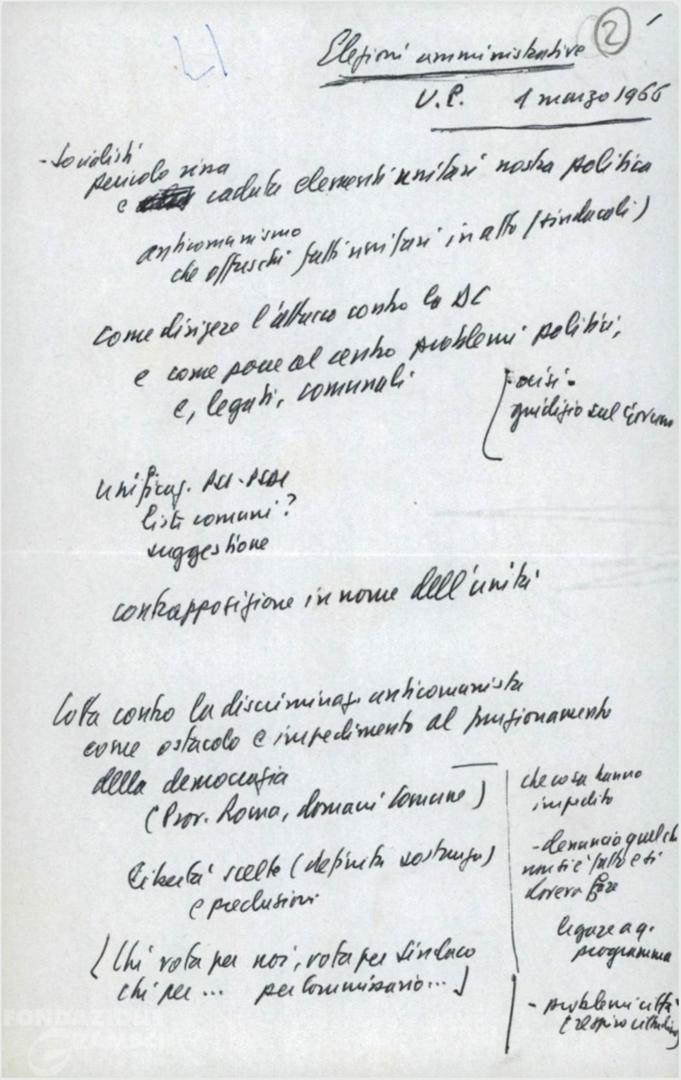 2
Elezioni amministrative
U.P. 1 marzo 1966
- Socialisti
pericolo rissa
e caduta elementi unitari nostra politica
anticomunismo
che offuschi fatti unitari in atto (sindacali)
come dirigere l'attacco contro la DC
e come porre al centro problemi politici,
e, legati, comunali
- crisi -
giudizio sul Governo
unificaz. PSI-PSDI
liste comuni?
suggestione
contrapposizione in nome dell'unità
lotta contro la discriminaz. anticomunista
come ostacolo e impedimento al funzionamento
della democrazia
(Prov. Roma, domani Comune)
Libertà scelte (definita sostanza)
e preclusioni
(Chi vota per noi, vota per Sindaco
chi per... per Commissario...)
che cosa hanno
impedito
- denuncia quel che
non si è fatto e si
doveva fare
legare a q.
programma
- problemi città
(respiro cittadino)
FONDAZIONE
GRAMSCI